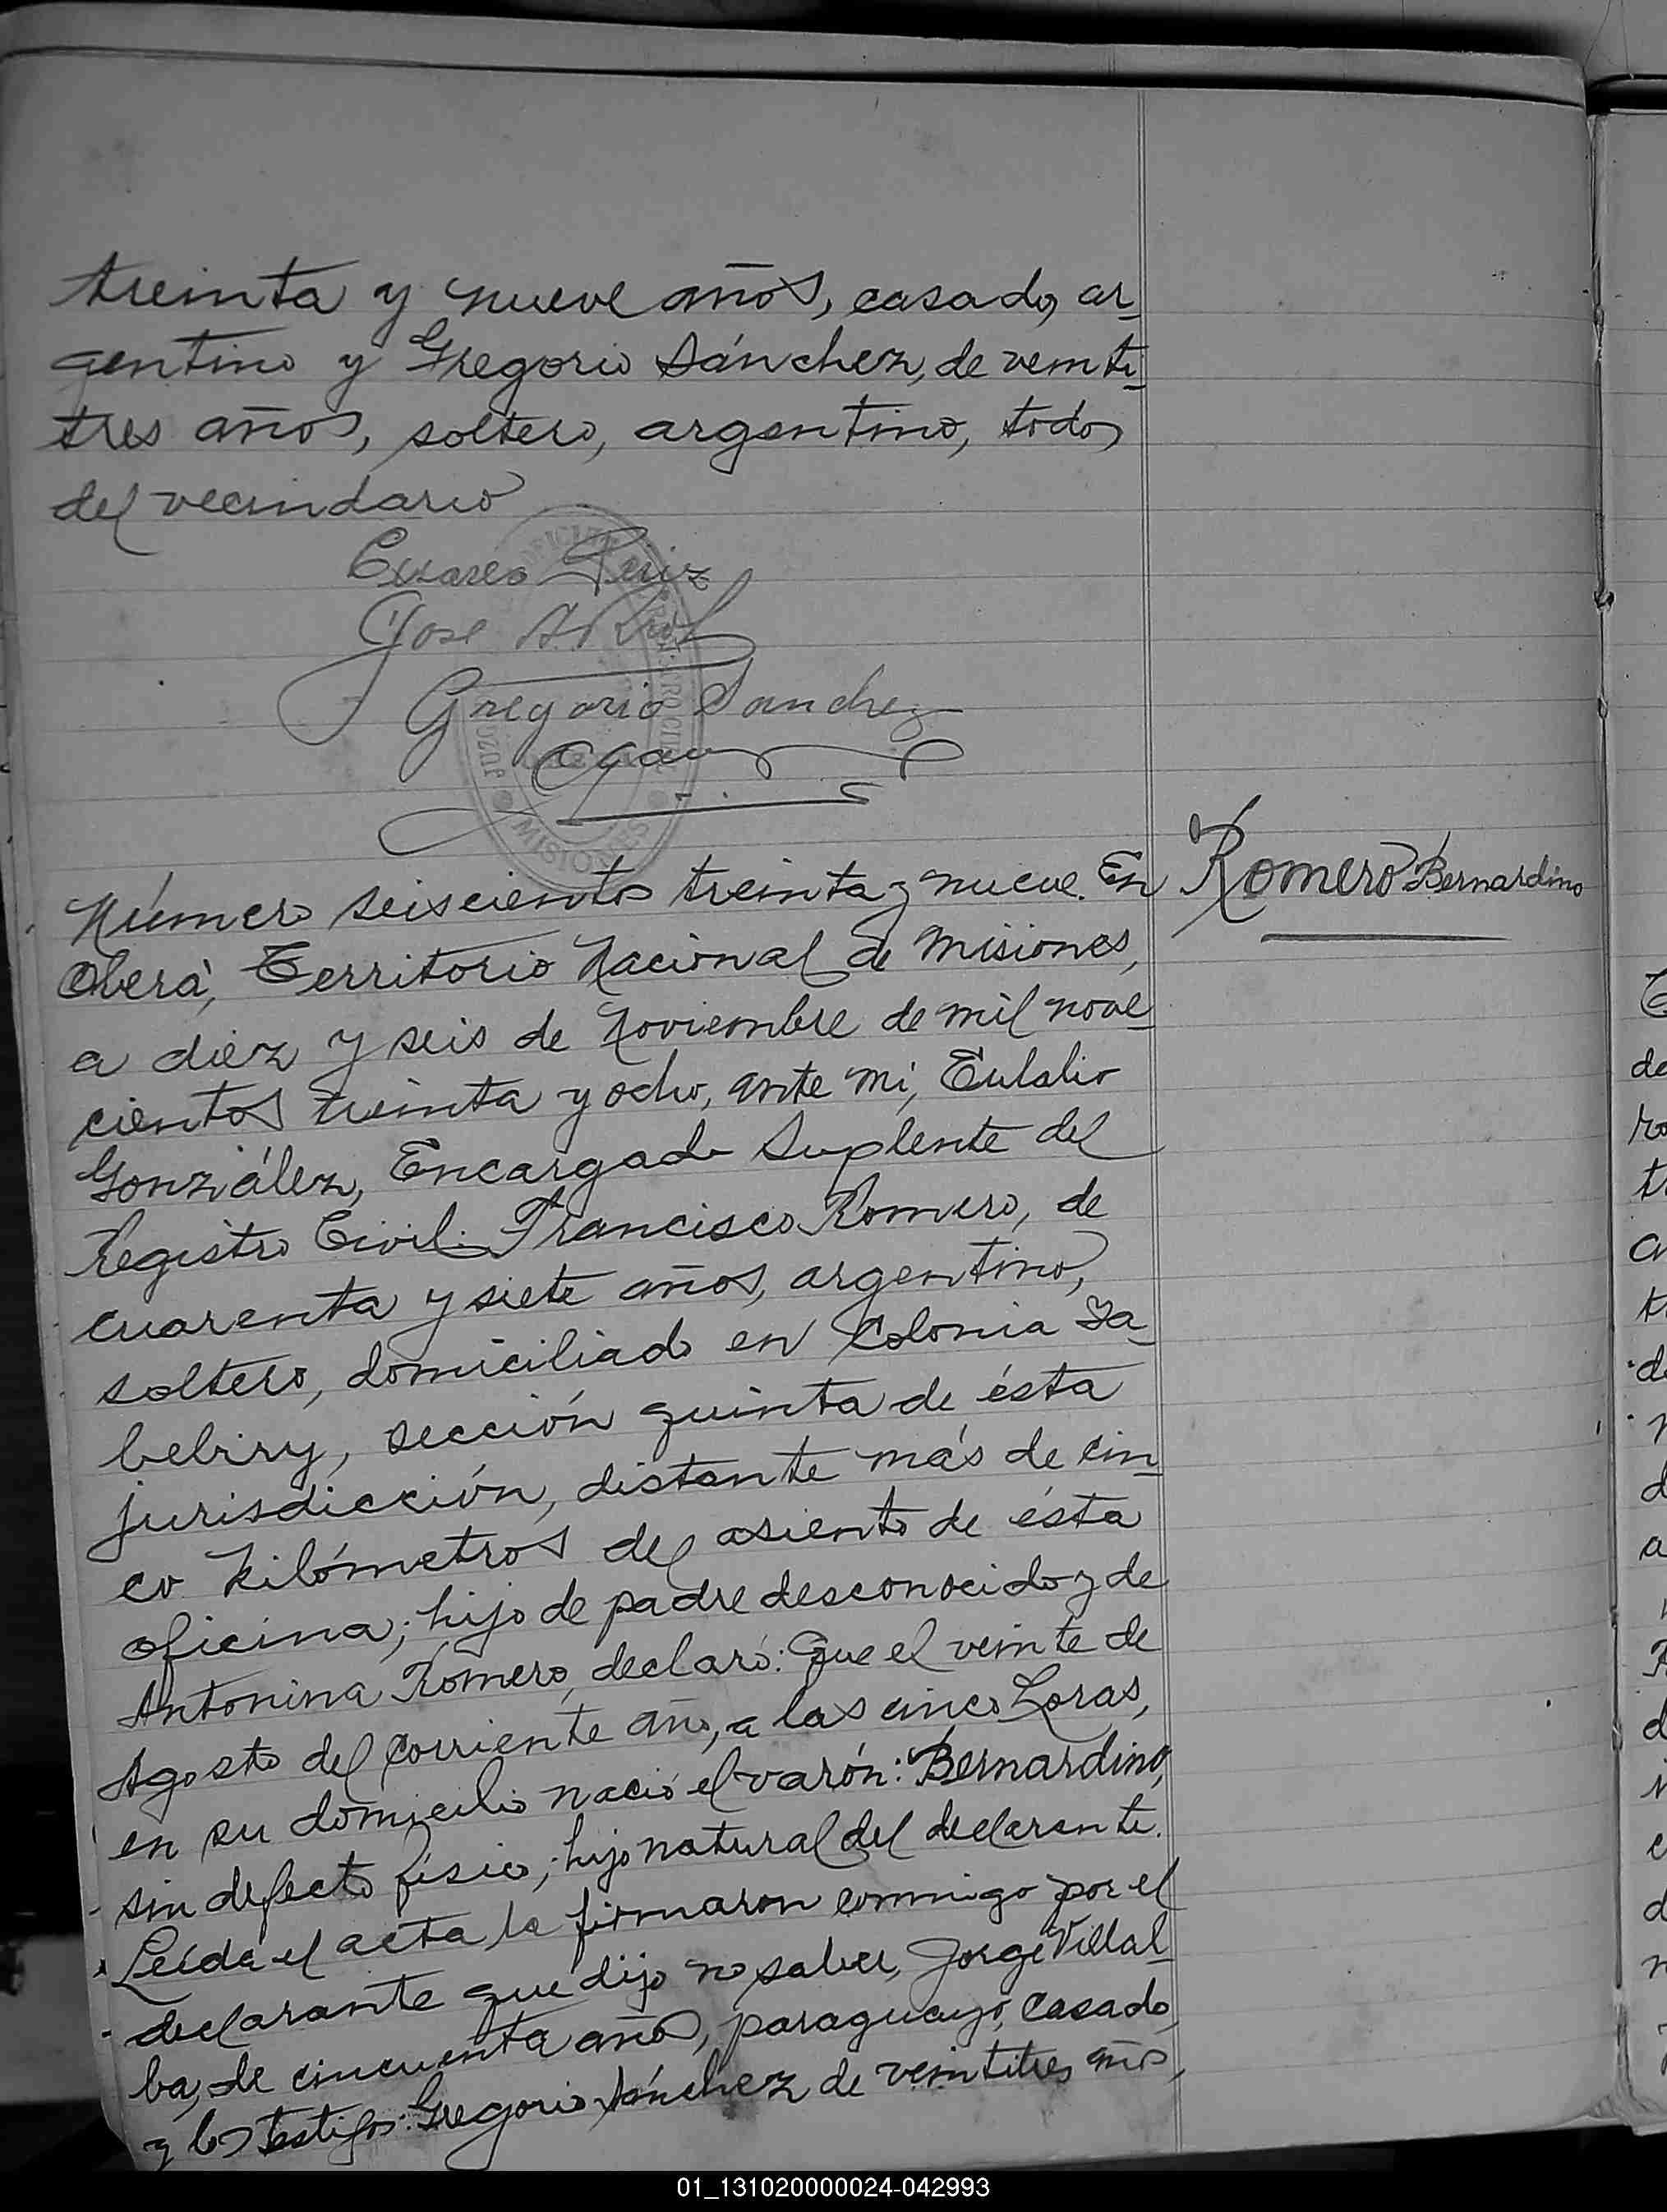 treinta y nueve años, casado, ar-
gentino y Gregorio Sánchez, de veinti-
tres años, soltero, argentino, todos
del vecindario
Jose A.
Gregorio Sanchez
OFICINA
REGISTRO CIVIL
MISIONES
Número seiscientos treinta y nueve. En
Romero Bernardino
Oberá, Territorio Nacional de Misiones,
a diez y seis de Noviembre de mil nove-
cientos treinta y ocho, ante mi, Eulalio
González, Encargado Suplente del
Registro Civil. Francisco Romero, de
cuarenta y siete años, argentino,
soltero, domiciliado en Colonia Ya-
bebiry, sección quinta de ésta
jurisdicción, distante más de cin-
co kilómetros del asiento de ésta
oficina; hijo de padre desconocido y de
Antonina Romero, declaró: Que el veinte de
Agosto del corriente año, a las cinco horas,
en su domicilio nació el varón: Bernardino,
sin defecto físico; hijo natural del declarante.
Leída el acta la firmaron conmigo por el
declarante que dijo no saber, Jorge Villal-
ba, de cincuenta años, paraguayo, casado,
y los testigos: Gregorio Sánchez de veintitres años,
01_131020000024-042993